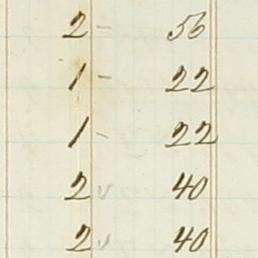 2 - 56
1 - 22
1 - 22
2 v 40
2 v 40